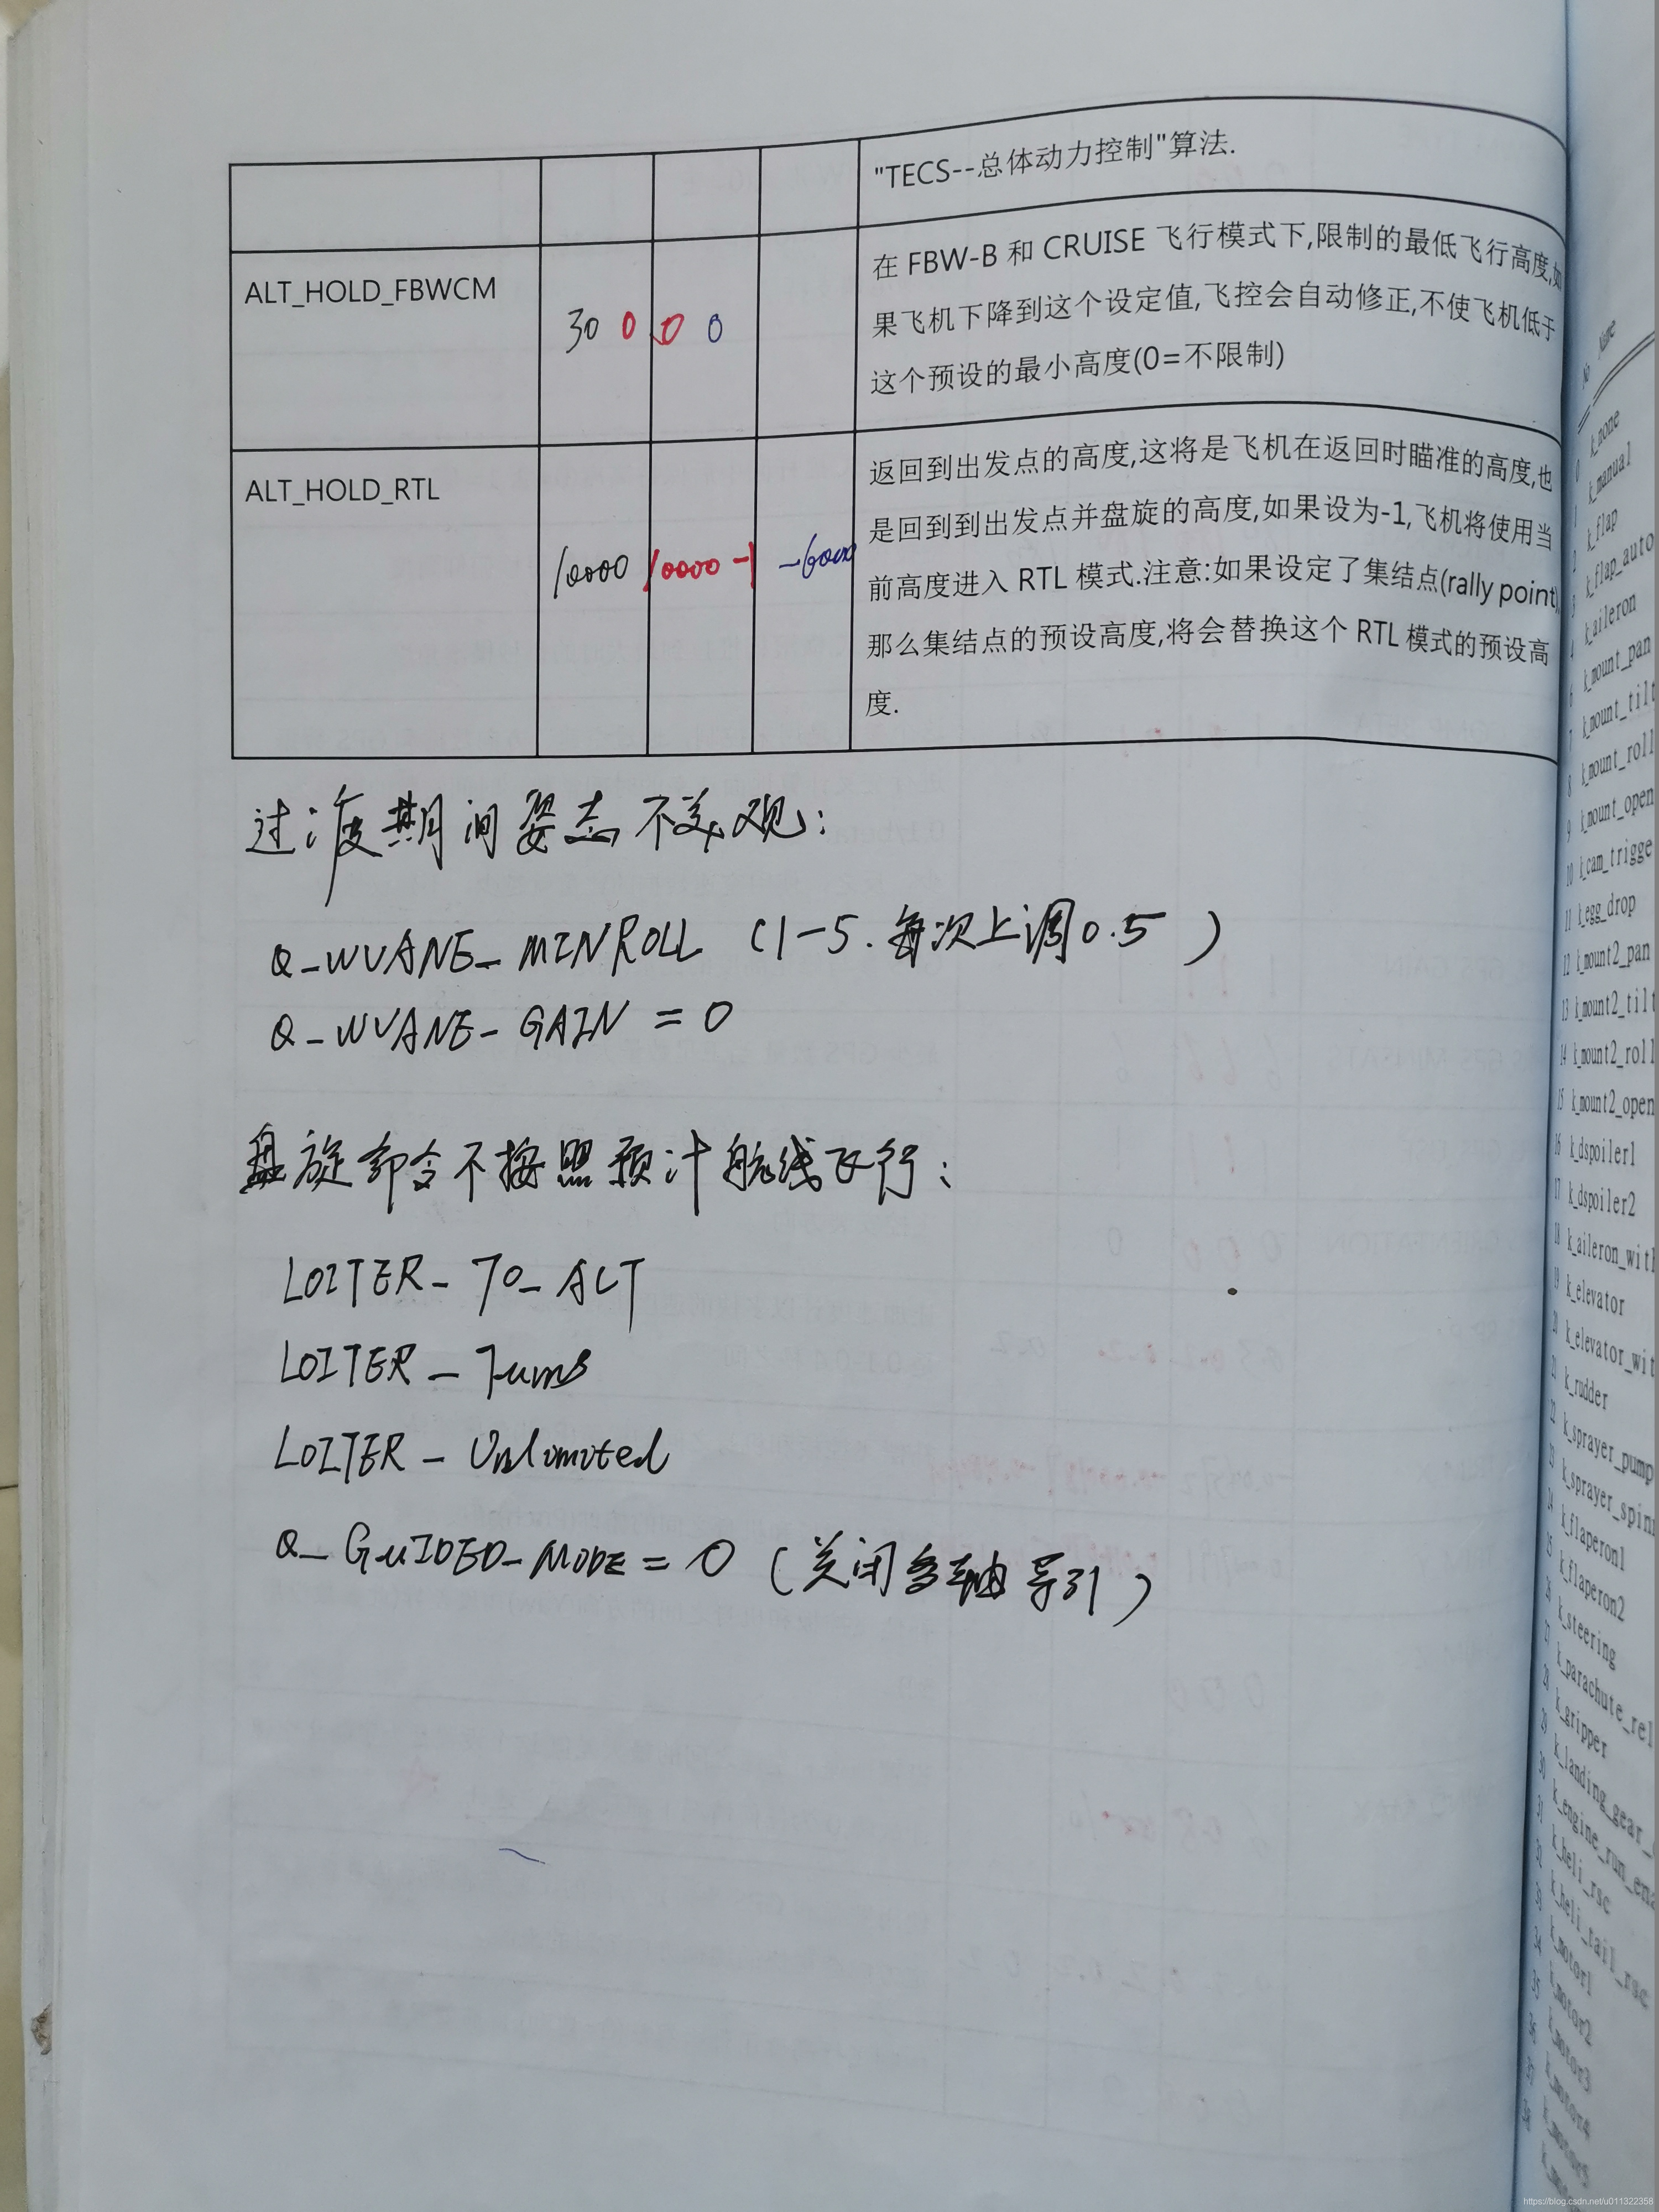 "TECS--总体动力控制"算法.
ALT_HOLD_FBWCM
30 0 0 0
在 FBW-B 和 CRUISE 飞行模式下,限制的最低飞行高度,如
果飞机下降到这个设定值,飞控会自动修正,不使飞机低于
这个预设的最小高度(0=不限制)
ALT_HOLD_RTL
10000 10000 -1 -6000
返回到出发点的高度,这将是飞机在返回时瞄准的高度,也
是回到到出发点并盘旋的高度,如果设为-1,飞机将使用当
前高度进入 RTL 模式.注意:如果设定了集结点(rally point),
那么集结点的预设高度,将会替换这个 RTL 模式的预设高
度.
过渡期间姿态不美观:
Q_WVANE_MINROLL (1-5.每次上调0.5 )
Q_WVANE_GAIN = 0
盘旋命令不按照预计航线飞行:
LOITER_TO_ALT
LOITER_Turns
LOITER_Unlimited
Q_GuIDED_MODE = 0 (关闭多轴导引)
No Name
0 k_none
1 k_manual
2 k_flap
3 k_flap_auto
4 k_aileron
6 k_mount_pan
7 k_mount_tilt
8 k_mount_roll
9 k_mount_open
10 k_cam_trigge
11 k_egg_drop
12 k_mount2_pan
13 k_mount2_tilt
14 k_mount2_roll
15 k_mount2_open
16 k_dspoiler1
17 k_dspoiler2
18 k_aileron_with
19 k_elevator
20 k_elevator_wit
21 k_rudder
22 k_sprayer_pump
23 k_sprayer_spin
24 k_flaperon1
25 k_flaperon2
26 k_steering
27 k_parachute_rel
28 k_gripper
29 k_landing_gear
30 k_engine_run_ena
31 k_heli_rsc
32 k_heli_tail_rsc
33 k_motor1
34 k_motor2
35 k_motor3
36 k_motor4
37 k_motor5
38
https://blog.csdn.net/u011322358